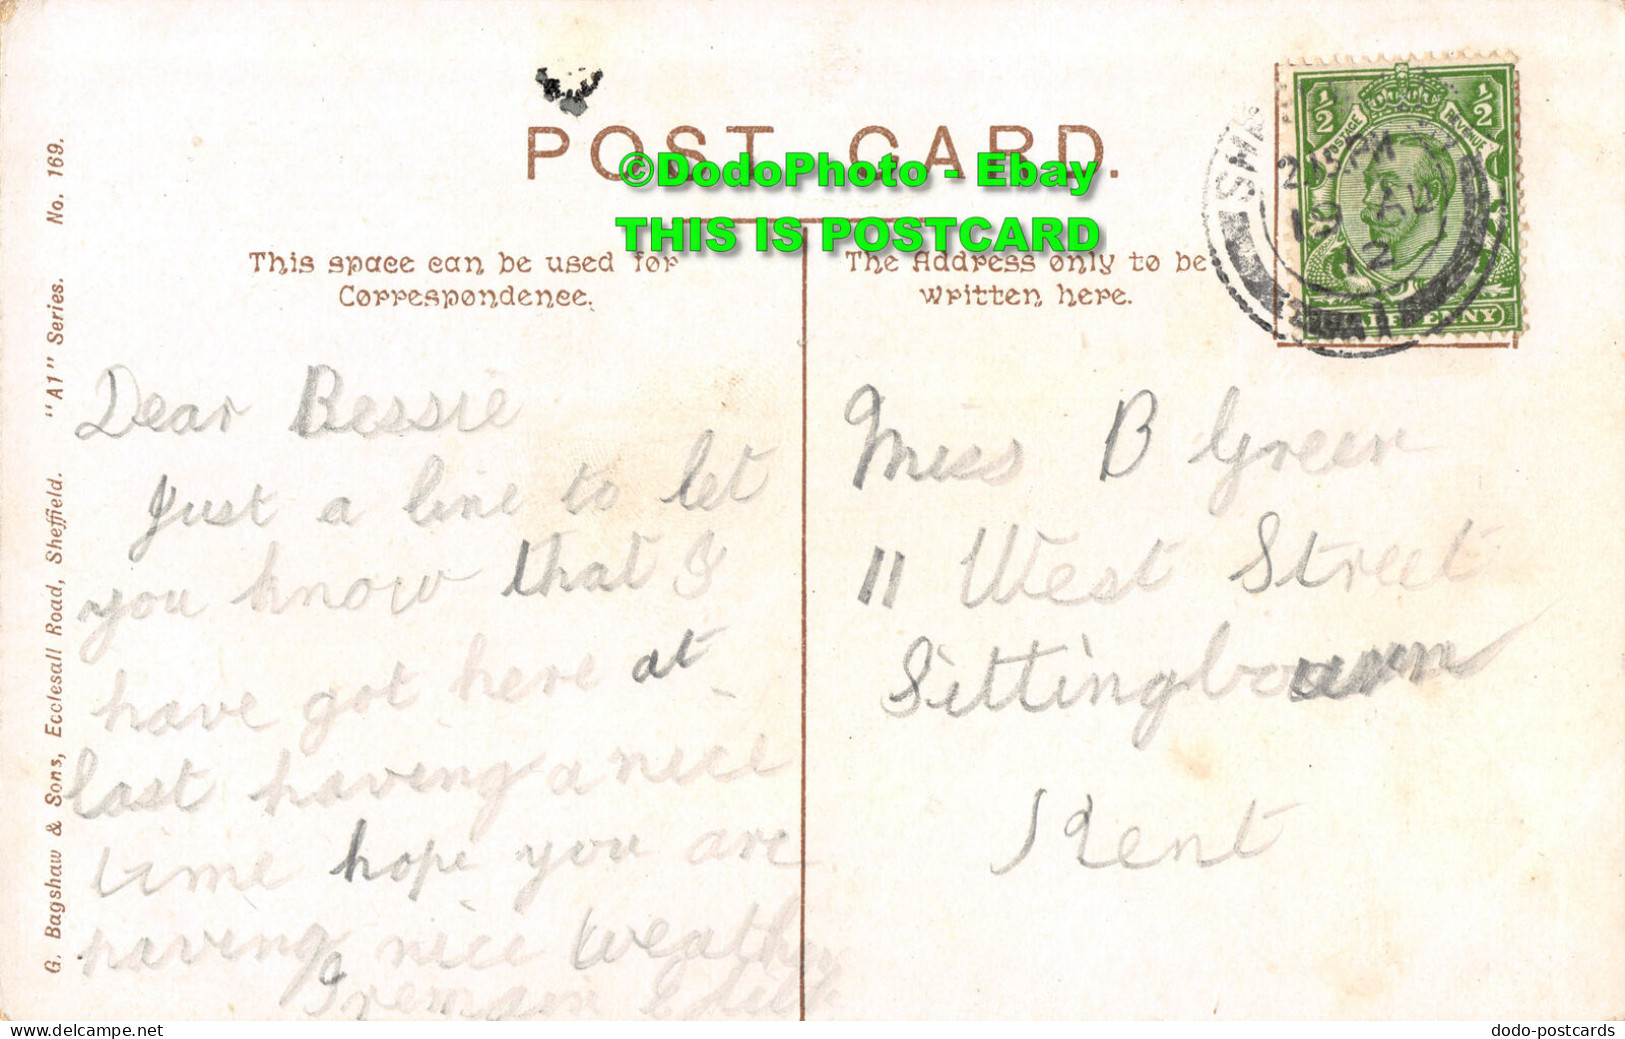 POST CARD.
©DodoPhoto - Ebay
THIS IS POSTCARD
This space can be used for
Correspondence.
The Address only to be
written here.
G. Bagshaw & Sons, Ecclesall Road, Sheffield. "A1" Series. No. 169.
½ ½
POSTAGE REVENUE
HALFPENNY
SWA
PM
19 AU
12
Dear Bessie
Just a line to let
you know that I
have got here at
last having a nice
time hope you are
having nice weather
I remain
Miss B Green
11 West Street
Sittingbourn
Kent
delcampe.net
dodo-postcards